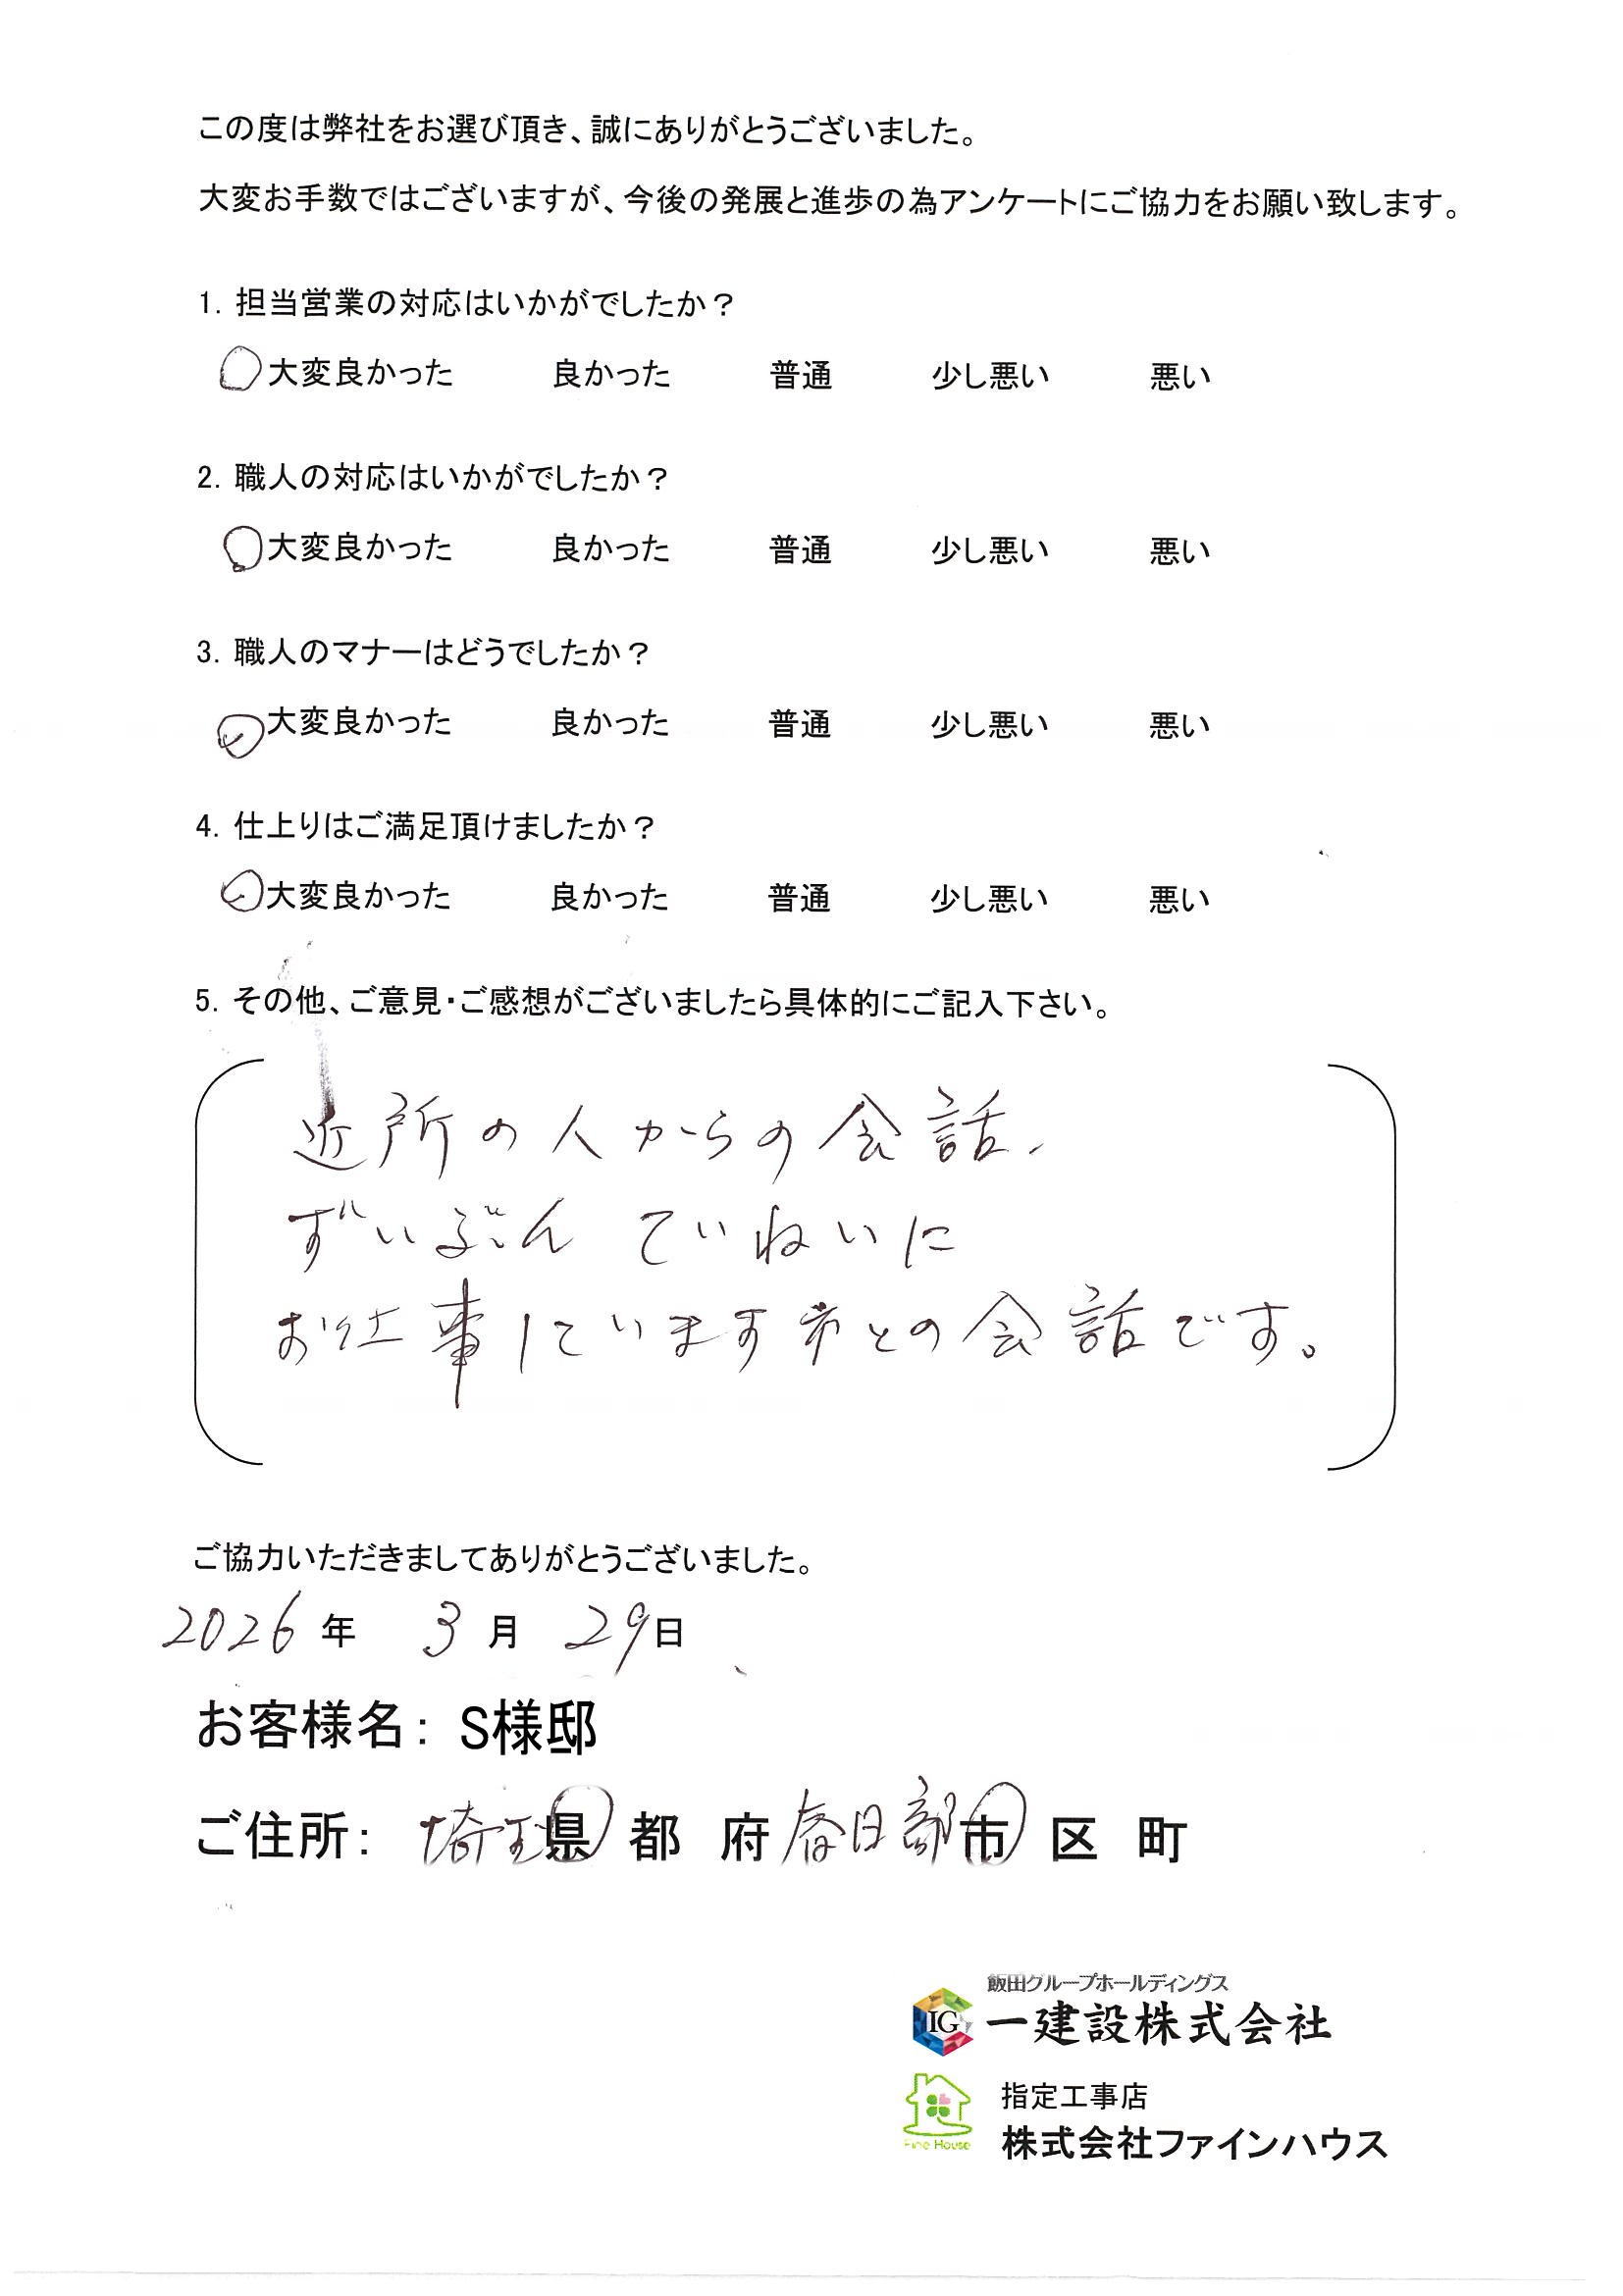 この度は弊社をお選び頂き、誠にありがとうございました。
大変お手数ではございますが、今後の発展と進歩の為アンケートにご協力をお願い致します。
1. 担当営業の対応はいかがでしたか？
○大変良かった 良かった 普通 少し悪い 悪い
2. 職人の対応はいかがでしたか？
○大変良かった 良かった 普通 少し悪い 悪い
3. 職人のマナーはどうでしたか？
○大変良かった 良かった 普通 少し悪い 悪い
4. 仕上りはご満足頂けましたか？
○大変良かった 良かった 普通 少し悪い 悪い
5. その他、ご意見・ご感想がございましたら具体的にご記入下さい。
近所の人からの会話、
ずいぶん ていねいに
お仕事していますとの会話です。
ご協力いただきましてありがとうございました。
2026年 3月 29日
お客様名： S様邸
ご住所： 埼玉県 都 府 春日部市 区 町
飯田グループホールディングス
IG 一建設株式会社
指定工事店
Fine House 株式会社ファインハウス